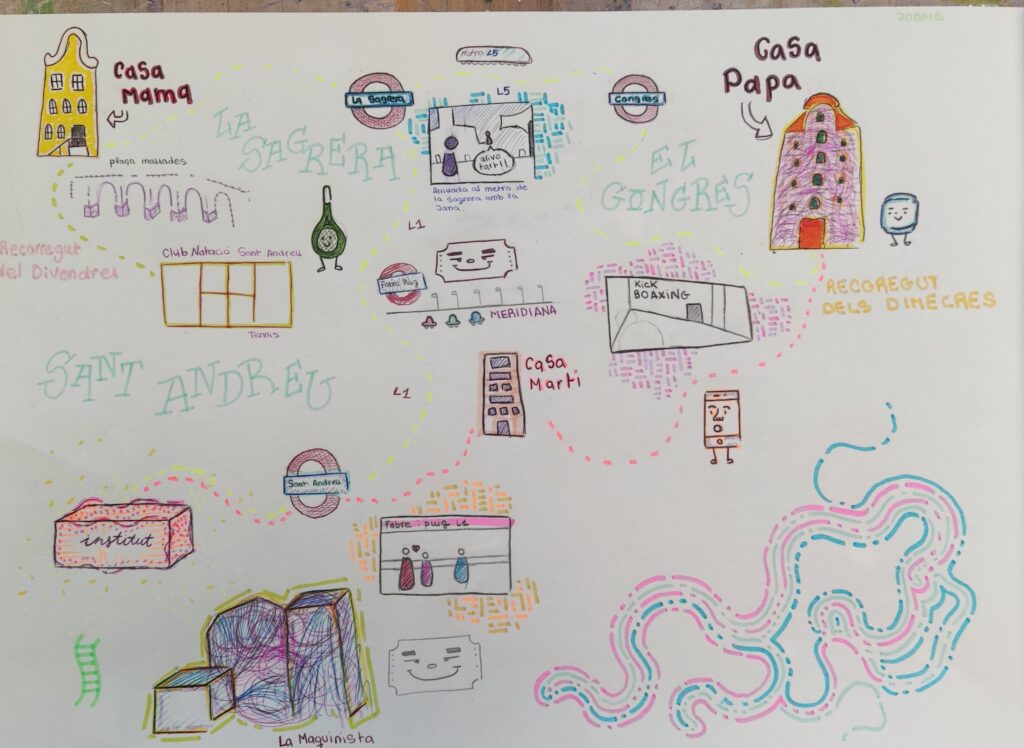 JOANA
Casa
Mama
plaça masades
LA
SAGRERA
La Sagrera
Metro L5
L5
arivo
tart!!
Arrivada al metro de
la sagrera amb la
Jana.
Congres
EL
CONGRÈS
Casa
Papa
Recorregut
del Divendres
Club Natació Sant Andreu
Tennis
L1
Fabre Puig
MERIDIANA
Kick
BOAXING
RECORREGUT
DELS DIMECRES
SANT ANDREU
L1
Casa
Martí
Sant Andreu
institut
Fabre i puig L1
La Maquinista